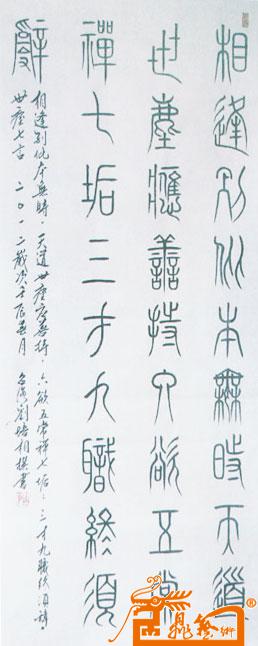 相逢别似本無時天道
世塵應善持六欲五常
禪七垢三才九職終須
辭
相逢别似本無時，天道世塵應善持，六欲五常禪七垢；三才九職終須辭。
世塵七古 二〇一二歲次壬辰 月 劉培相撰書
藝術